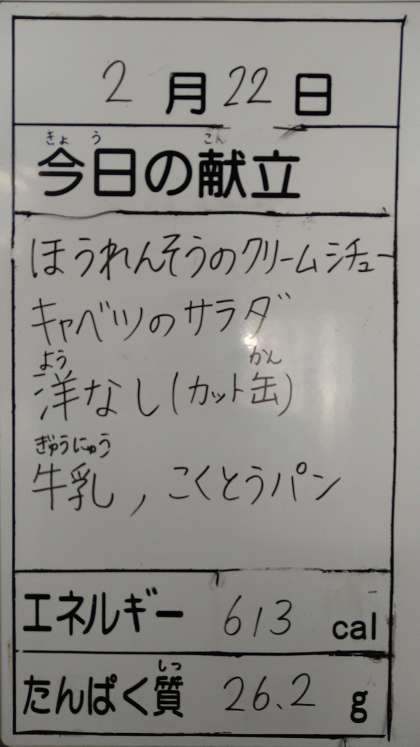 2月22日
きょう こん
今日の献立
ほうれんそうのクリームシチュー
キャベツのサラダ
よう かん
洋なし(カット缶)
ぎゅうにゅう
牛乳, こくとうパン
エネルギー 613 cal
しつ
たんぱく質 26.2 g